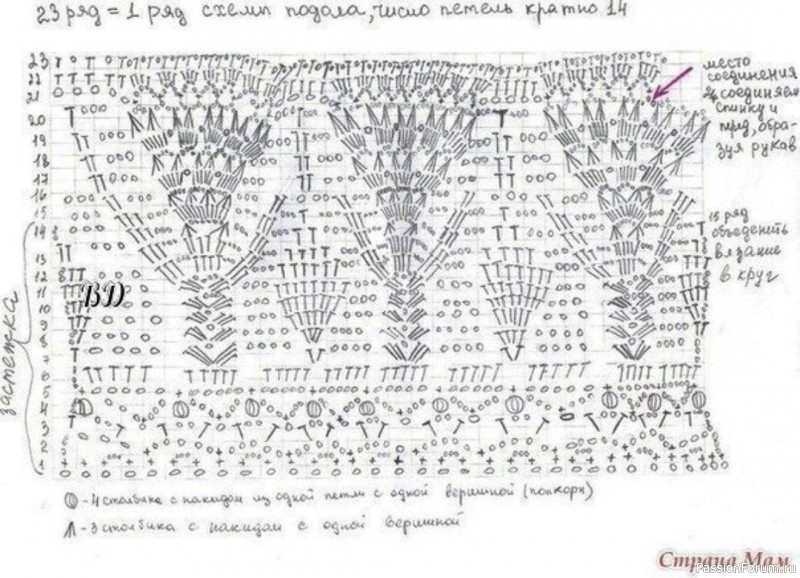 23 ряд = 1 ряд схемы подола, число петель кратно 14
23
22
21
20
19
18
17
16
15
14
13
12
11
10
9
8
7
6
5
4
3
2
1
место
соединения
соединяем
спинку и
перед, обра-
зуя рукав
15 ряд
объеденить
вязание
в круг
застежка
BD
- 4 столбика с накидом из одной петли с одной вершиной (попкорн)
- 3 столбика с накидом с одной вершиной
Страна Мам
PassionForum.ru